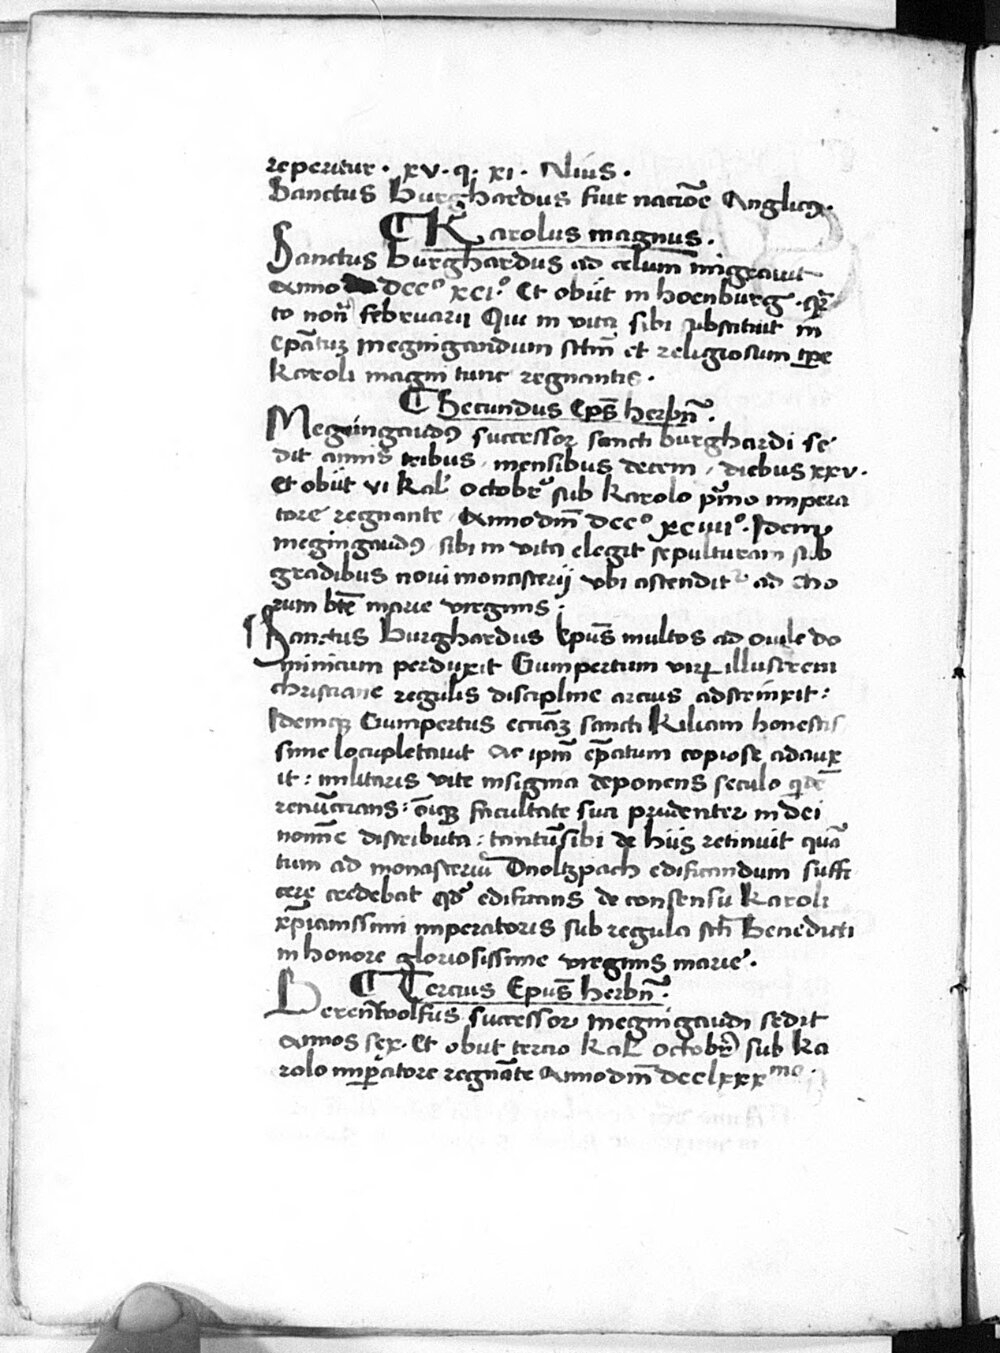 reperitur · xv · q · xi · Alius ·
Sanctus Burghardus fuit nacōe Anglicꝰ ·
¶ Karolus magnus ·
Sanctus Burghardus ad celum migrauit
Anno dccº xciº · Et obijt in hoenburg · qr̄
to non̄ februarii Qui in vita sibi substituit in
ep̄atuꝫ megingaudum sctm̄ et religiosum tp̄e
karoli magni tunc regnantis ·
¶ Secundus Ep̄s herbn̄ ·
Megingaudꝰ successor sancti burghardi se
dit annis tribus , mensibus decem , diebus xxv ·
Et obijt vi kal̄ octobr̄ sub karolo pͥmo impera
tore regnante , Anno dn̄i dccº xciiiiº · Idem
megingaudꝰ sibi in vita elegit sepulturam sub
gradibus noui monasterij vbi ascendit̄ ad cho
rum bt̄e marie virginis ·
¶ Sanctus Burghardus Ep̄us multos ad ouile do
minicum perduxit Gumpertum virꝫ illustrem
christiane regulis discipline arcius adstrinxit :
Idemqꝫ Gumpertus eccia̅ꝫ sancti Kiliani honestis
sime locupletauit Ac ip̄m ep̄atum copiose adaux
it : militaris vite insignia deponens seculo qͥdē
renūccians : o̅iqꝫ facultate sua prudenter in dei
nomīe distributa : tantū sibi de hijs retinuit quā
tum ad monasteriū Onoltzpach edificandum suffi
cere credebat qd̄ edificans de consensu karoli
xp̄ianissimi imperatoris sub regula sct̄i Benedicti
in honore gloriosissime virginis marie ·
¶ Tercius Ep̄us herbn̄ ·
Berenwolfus successor megingaudi sedit
Annos sex · Et obijt tercio kal̄ octobr̄ sub ka
rolo imp̄atore regnāte Anno dn̄i dcclxxxᵐᵒ ·